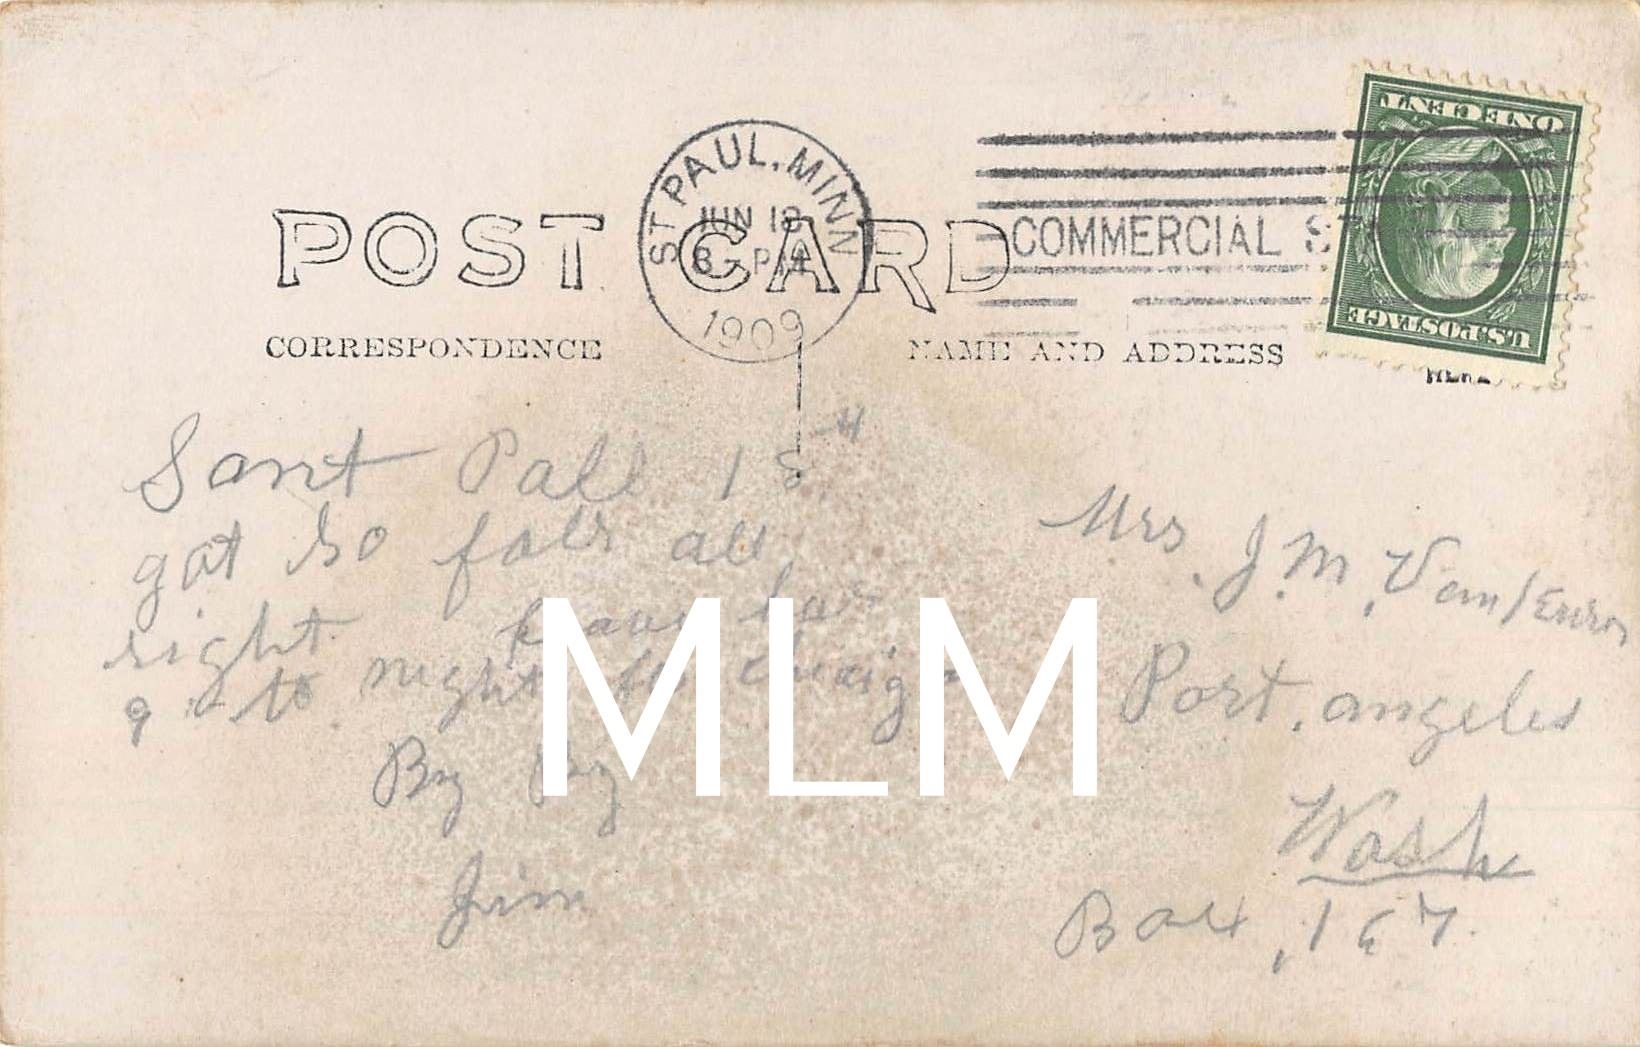 POST CARD
ST PAUL, MINN
JUN 18
8 - PM
1909
COMMERCIAL ST
ONE CENT
U.S. POSTAGE
CORRESPONDENCE
NAME AND ADDRESS
HERE
Sant Pall 18th
gat so falr all
right. leave her
9 to night for
By By
Jim
Mrs. J. M.
Port. angeles
Wash
Box, 167.
MLM